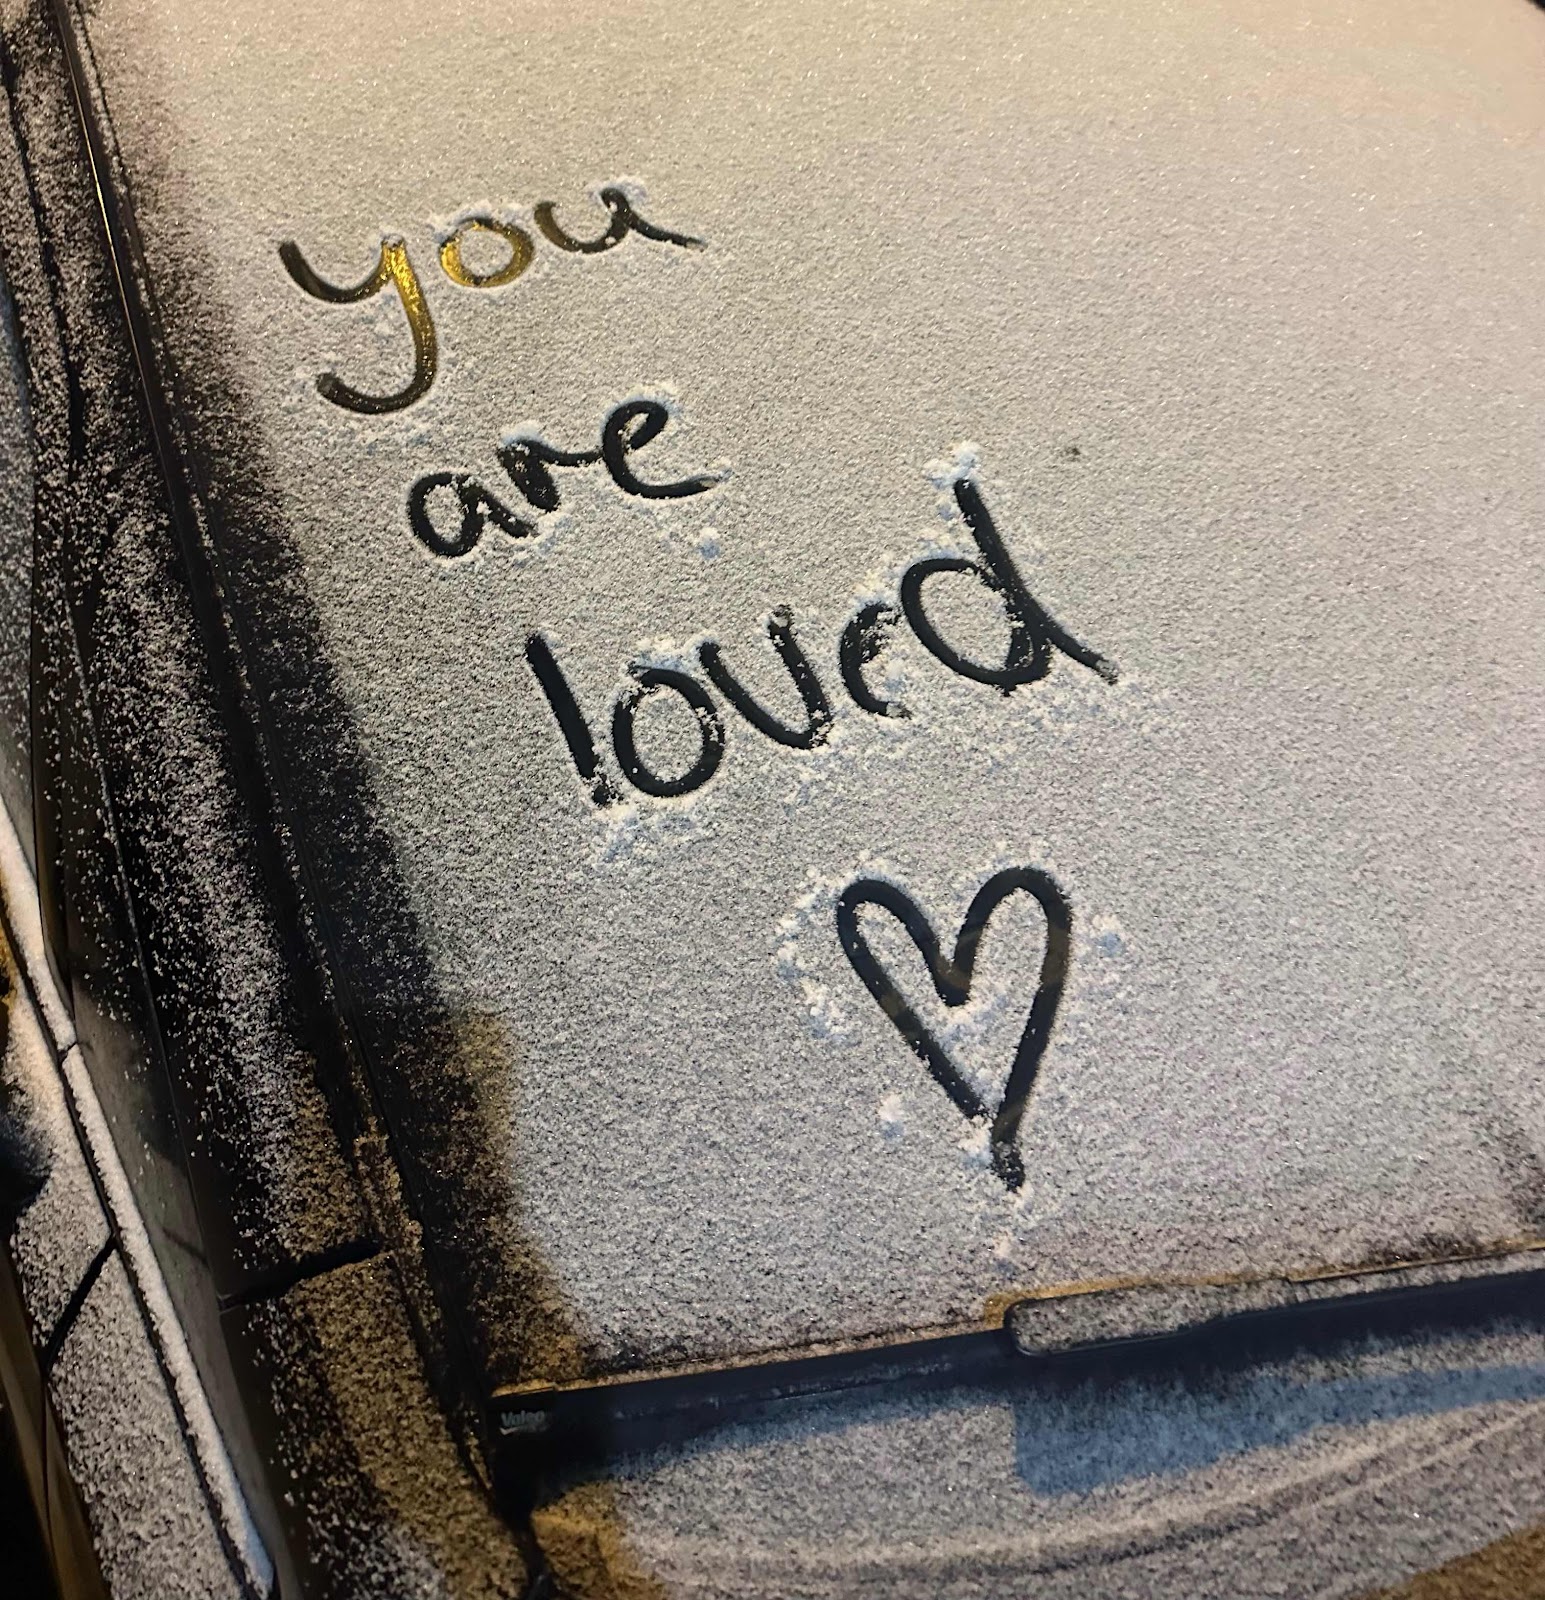 you
are
loved
Valeo